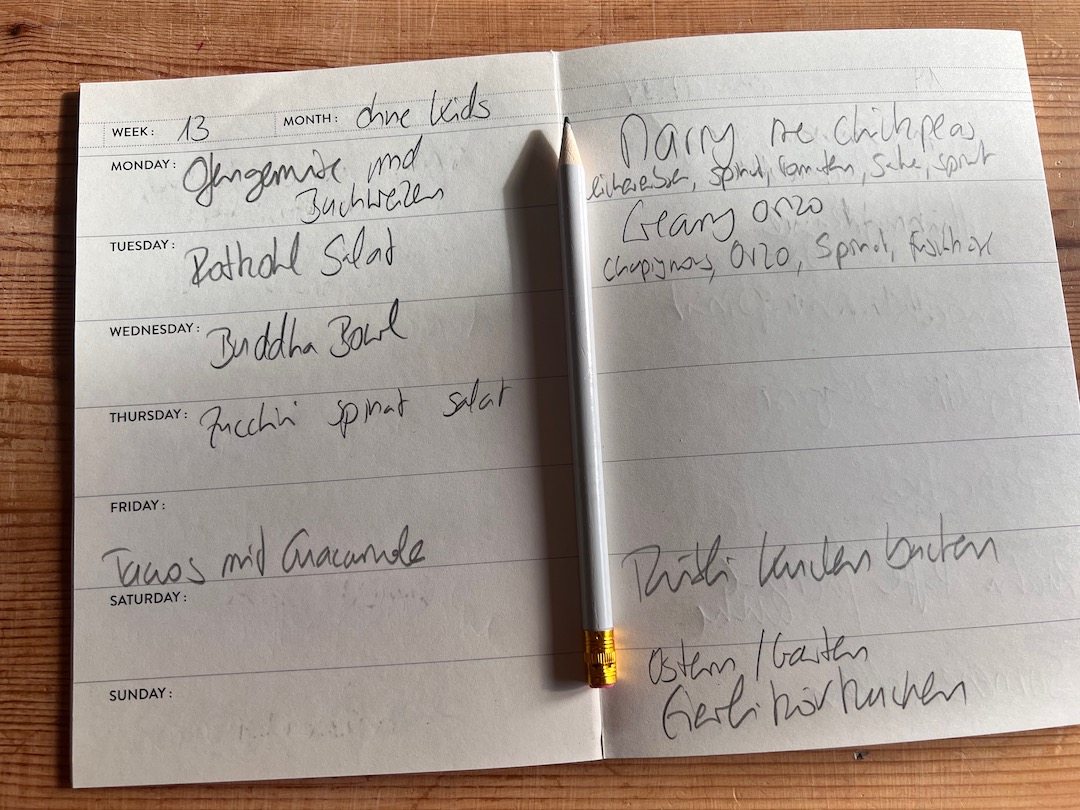 WEEK: 13 MONTH: ohne kids
MONDAY: Ofengemüse und
Buchweizen
TUESDAY: Rotkohl Salat
WEDNESDAY: Buddha Bowl
THURSDAY: Zucchini spinat salat
FRIDAY:
Tacos mit Guacamole
SATURDAY:
SUNDAY:
Marry me chickpeas
kichererbsen, spinat, tomaten, Sahne, spinat
Creamy Orzo
Orzo, Spinat, Frischkäse
Rüebli kuchen backen
Ostern / Garten
Eierlikör Kuchen